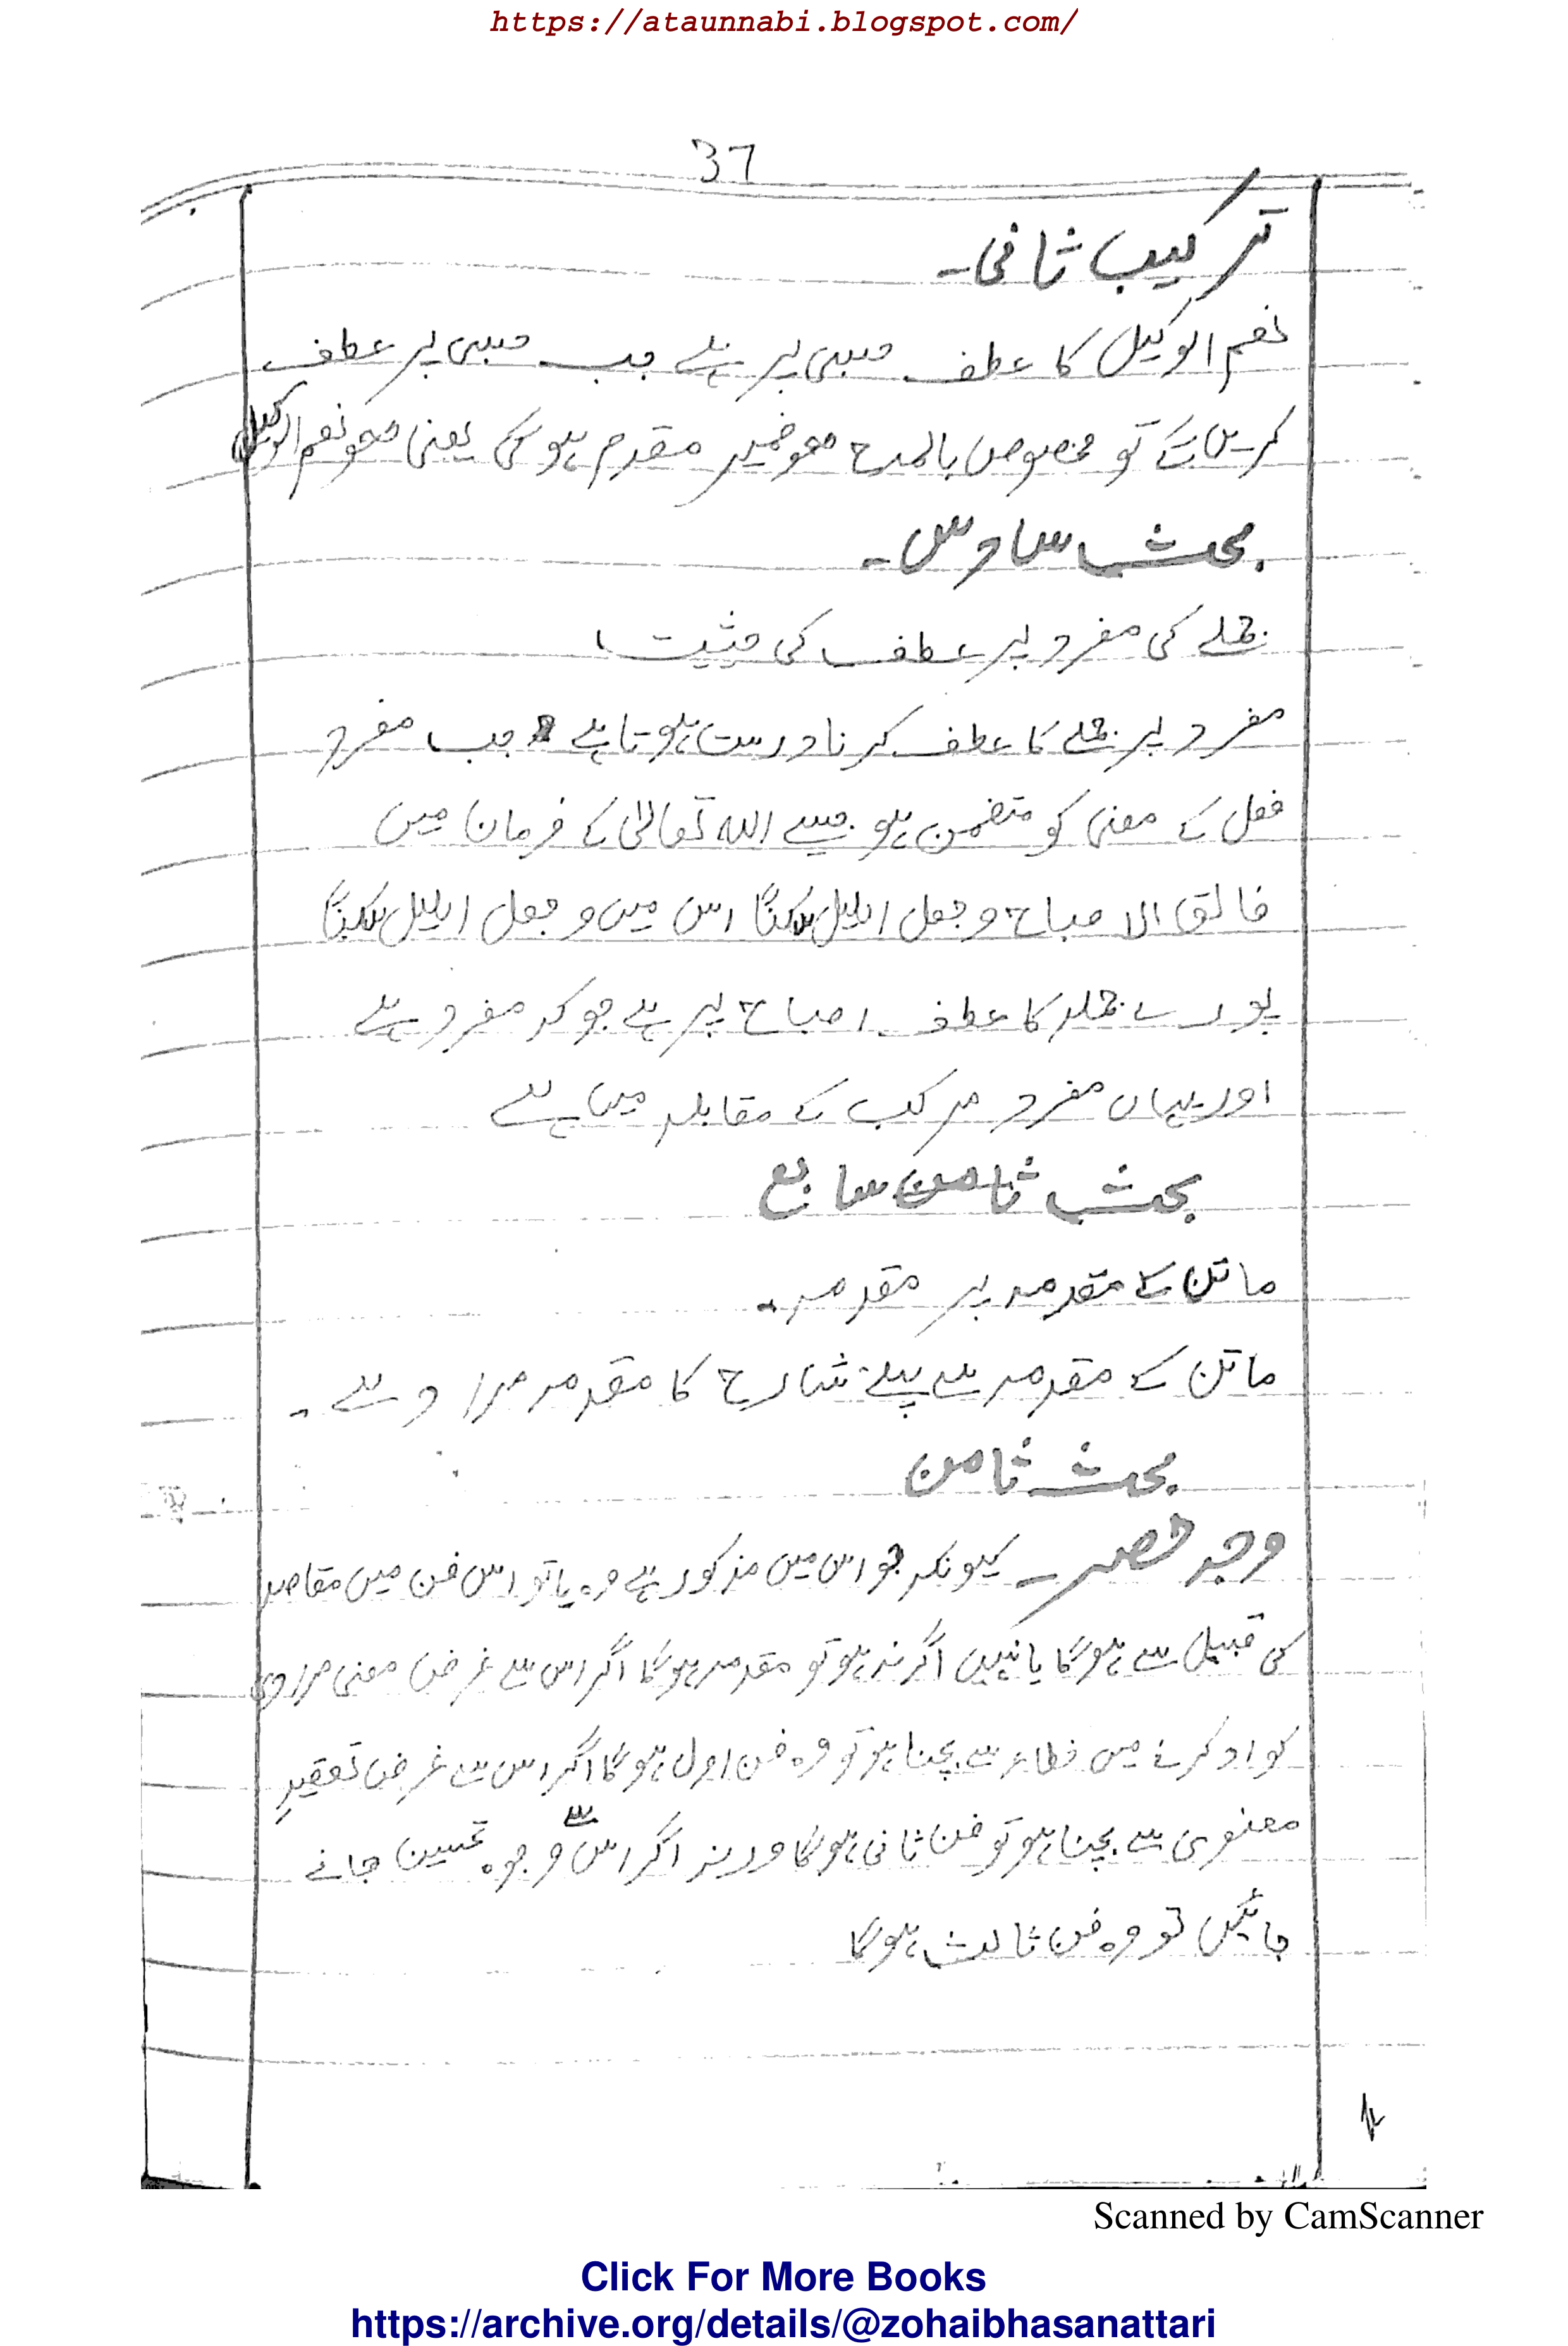 https://ataunnabi.blogspot.com/
37
ترکیب ثانی۔
نعم الوکیل کا عطف حسبی پر ہے جب حسبی پر عطف
کریں گے تو مخصوص بالمدح ھو ضمیر مقدم ہو گی یعنی ھو نعم الوکیل
بحث سادس۔
جملے کی مفرد پر عطف کی حیثیت
مفرد پر جملے کا عطف کرنا درست ہوتا ہے جب مفرد
فعل کے معنی کو متضمن ہو جیسے اللہ تعالیٰ کے فرمان میں
فالق الاصباح وجعل اللیل سکنًا اس میں وجعل اللیل سکنًا
پورے جملہ کا عطف اصباح پر ہے جو کہ مفرد ہے
اور یہاں مفرد مرکب کے مقابلہ میں ہے
بحث ثامن سابع
ماتن کے مقدمہ پر مقدمہ۔
ماتن کے مقدمہ سے پہلے شارح کا مقدمہ مراد ہے۔
بحث ثامن
وجہ حصر۔ کیونکہ جو اس میں مذکور ہے وہ یا تو اس فن میں مقاصد
کی قبیل سے ہو گا یا نہیں اگر نہ ہو تو مقدمہ ہو گا اگر اس سے غرض معنی مرادی
کو ادا کرنے میں خطاء سے بچنا ہو تو وہ فن اول ہو گا اگر اس سے غرض تعقید
معنوی سے بچنا ہو تو فن ثانی ہو گا ورنہ اگر اس سے وجوہ تحسین جانے
جائیں تو وہ فن ثالث ہو گا
Scanned by CamScanner
Click For More Books
https://archive.org/details/@zohaibhasanattari